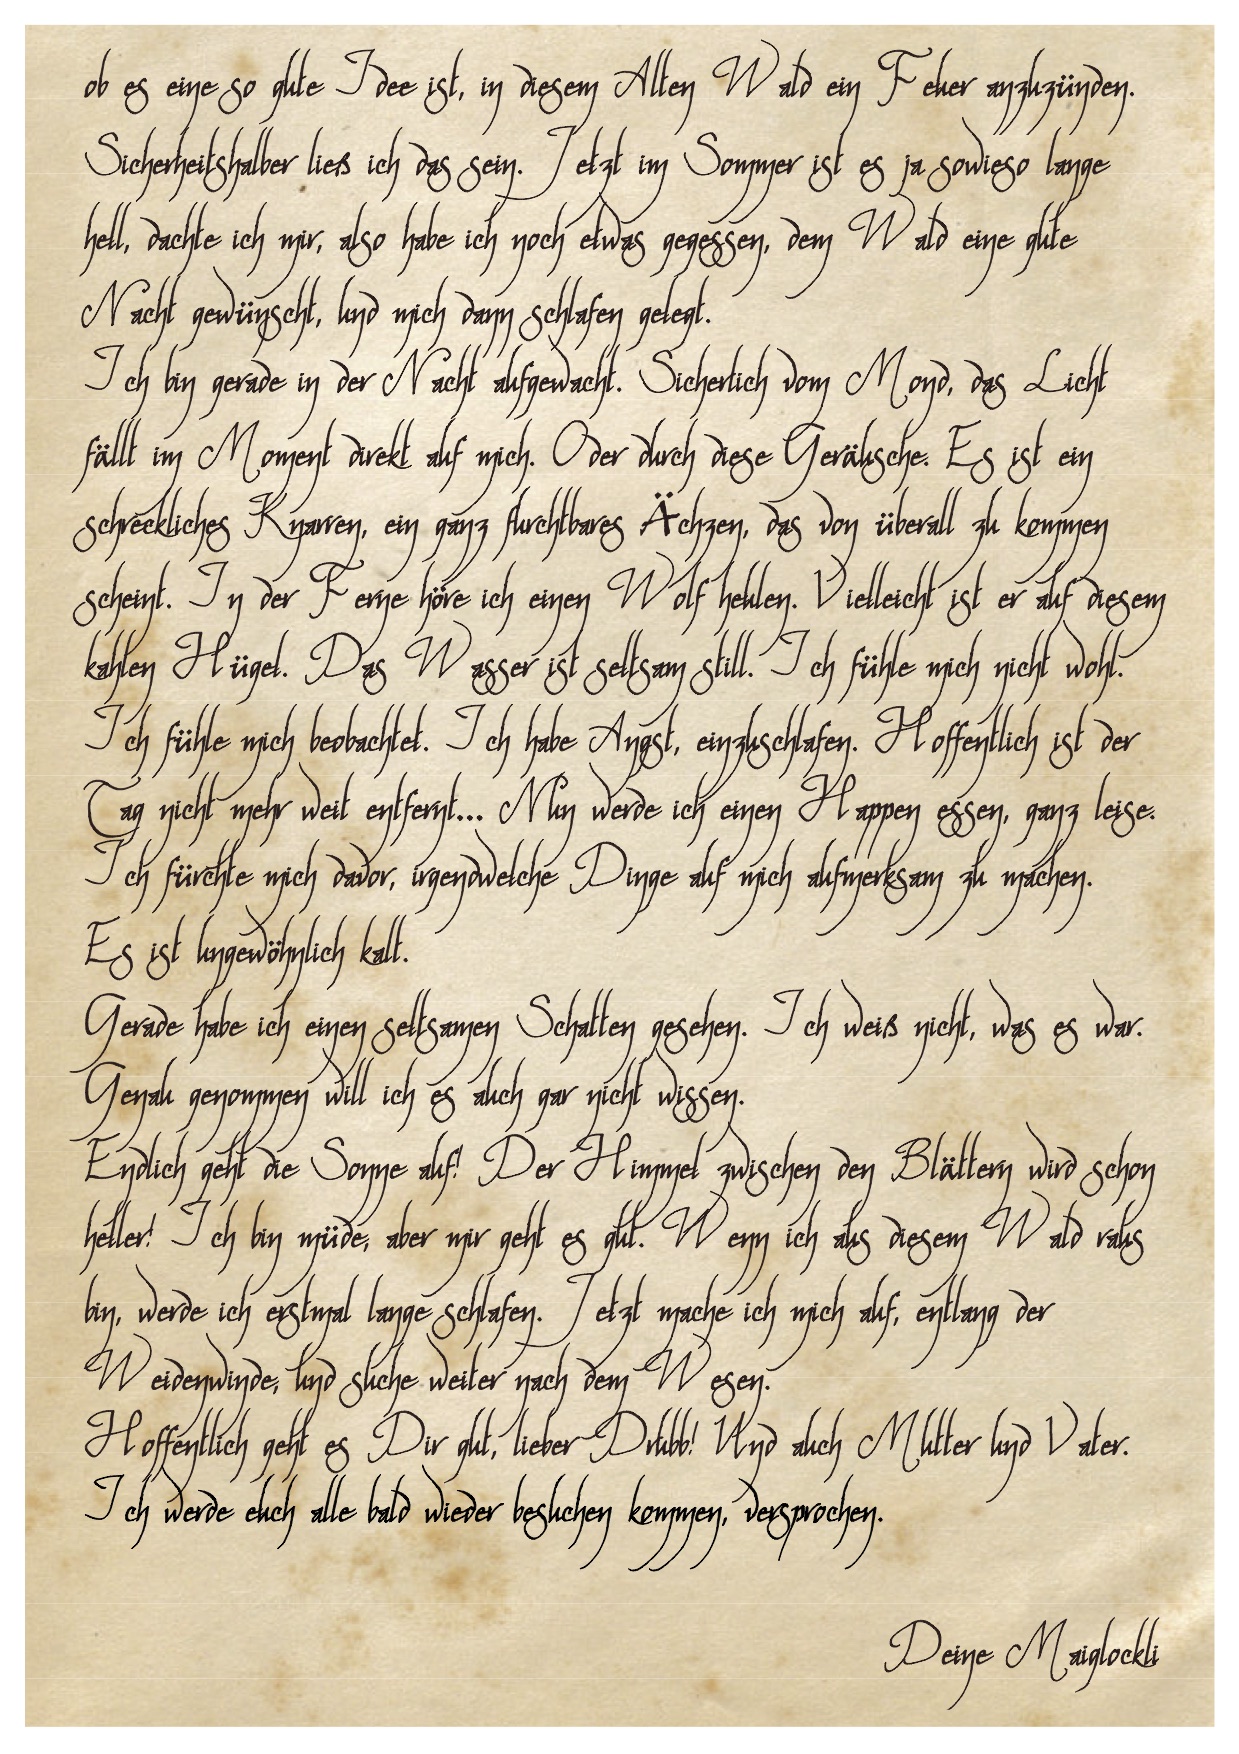 ob es eine so gute Idee ist, in diesem Alten Wald ein Feuer anzuzünden.
Sicherheitshalber ließ ich das sein. Jetzt im Sommer ist es ja sowieso lange
hell, dachte ich mir, also habe ich noch etwas gegessen, dem Wald eine gute
Nacht gewünscht, und mich dann schlafen gelegt.
Ich bin gerade in der Nacht aufgewacht. Sicherlich vom Mond, das Licht
fällt im Moment direkt auf mich. Oder durch diese Geräusche. Es ist ein
schreckliches Knarren, ein ganz furchtbares Ächzen, das von überall zu kommen
scheint. In der Ferne höre ich einen Wolf heulen. Vielleicht ist er auf diesem
kahlen Hügel. Das Wasser ist seltsam still. Ich fühle mich nicht wohl.
Ich fühle mich beobachtet. Ich habe Angst, einzuschlafen. Hoffentlich ist der
Tag nicht mehr weit entfernt... Nun werde ich einen Happen essen, ganz leise.
Ich fürchte mich davor, irgendwelche Dinge auf mich aufmerksam zu machen.
Es ist ungewöhnlich kalt.
Gerade habe ich einen seltsamen Schatten gesehen. Ich weiß nicht, was es war.
Genau genommen will ich es auch gar nicht wissen.
Endlich geht die Sonne auf! Der Himmel zwischen den Blättern wird schon
heller! Ich bin müde, aber mir geht es gut. Wenn ich aus diesem Wald raus
bin, werde ich erstmal lange schlafen. Jetzt mache ich mich auf, entlang der
Weidenwinde, und suche weiter nach dem Wesen.
Hoffentlich geht es Dir gut, lieber Drubb! Und auch Mutter und Vater.
Ich werde euch alle bald wieder besuchen kommen, versprochen.
Deine Maiglockli